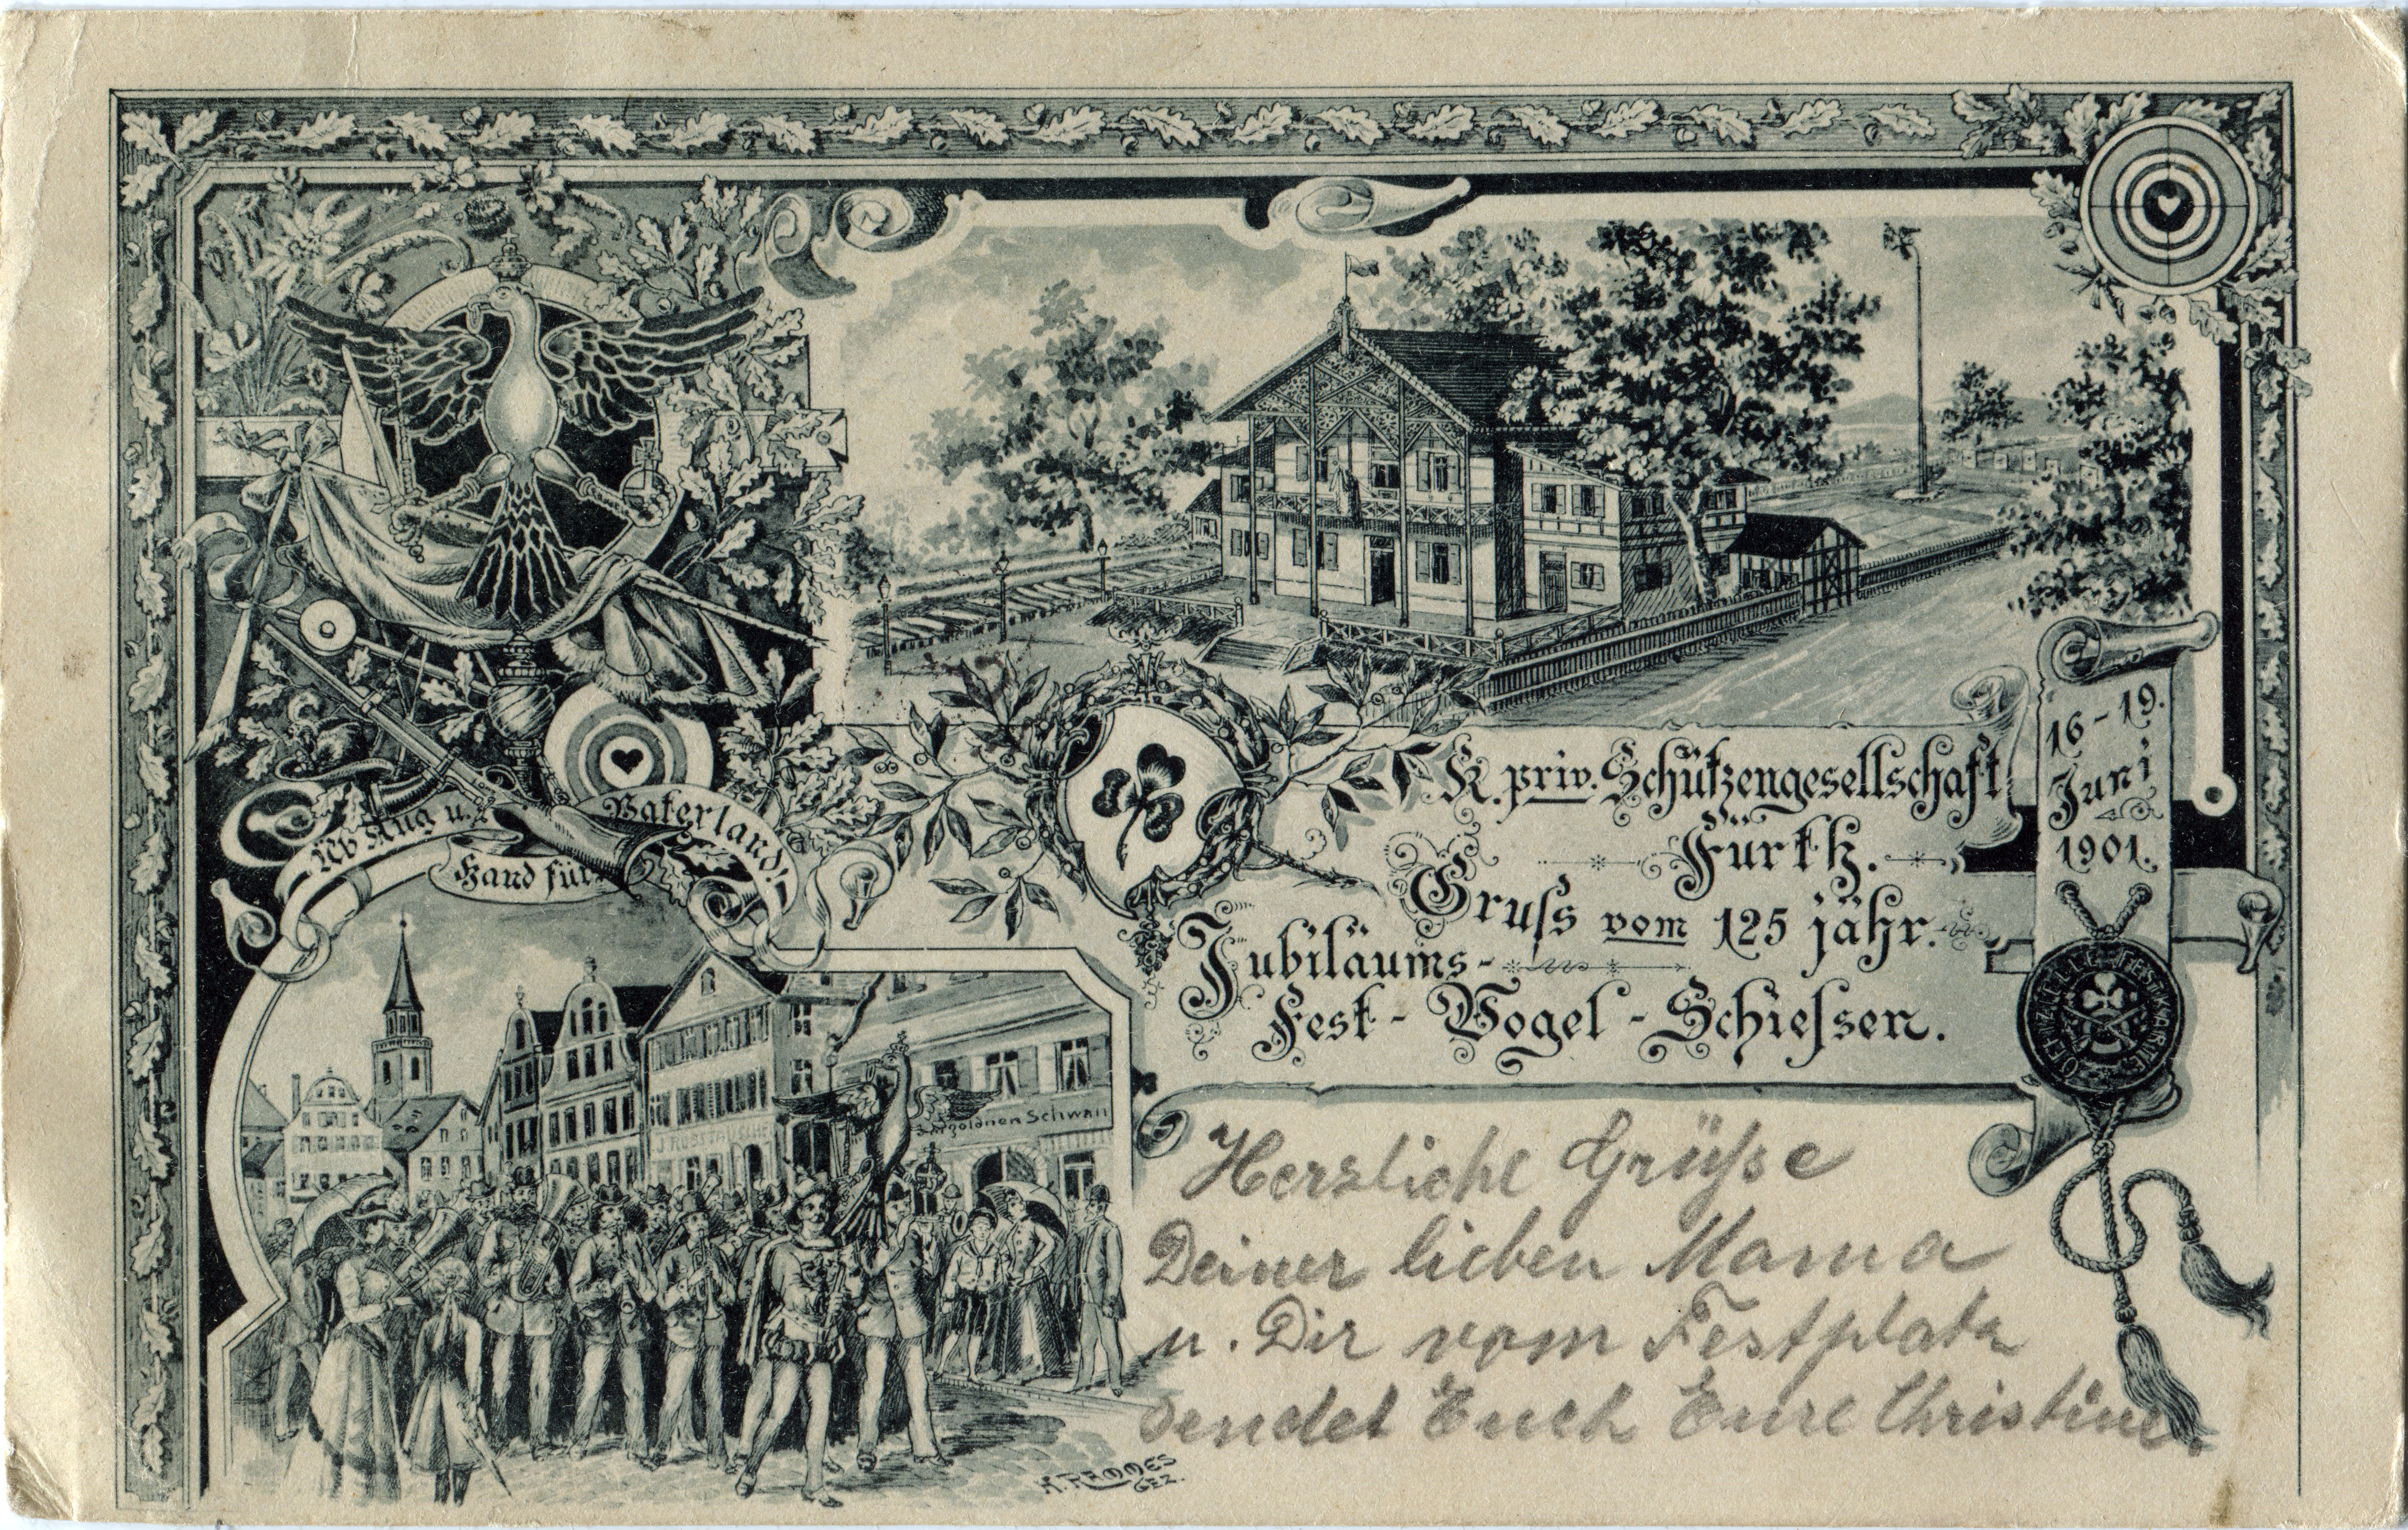 Üb Aug u.
Hand für
Vaterland!
K. priv. Schützengesellschaft
Fürth.
Gruſs vom 125 jähr.
Jubiläums-
Fest-Vogel-Schieſsen.
16-19.
Juni
1901.
OFFIZIELLE FESTKARTE
J. ROSSTAUSCHER
goldnen Schwan
Herzliche Grüße
Deiner lieben Mama
u. Dir vom Festplatz
sendet Euch Eure Christine.
H. RAMMES
GEZ.